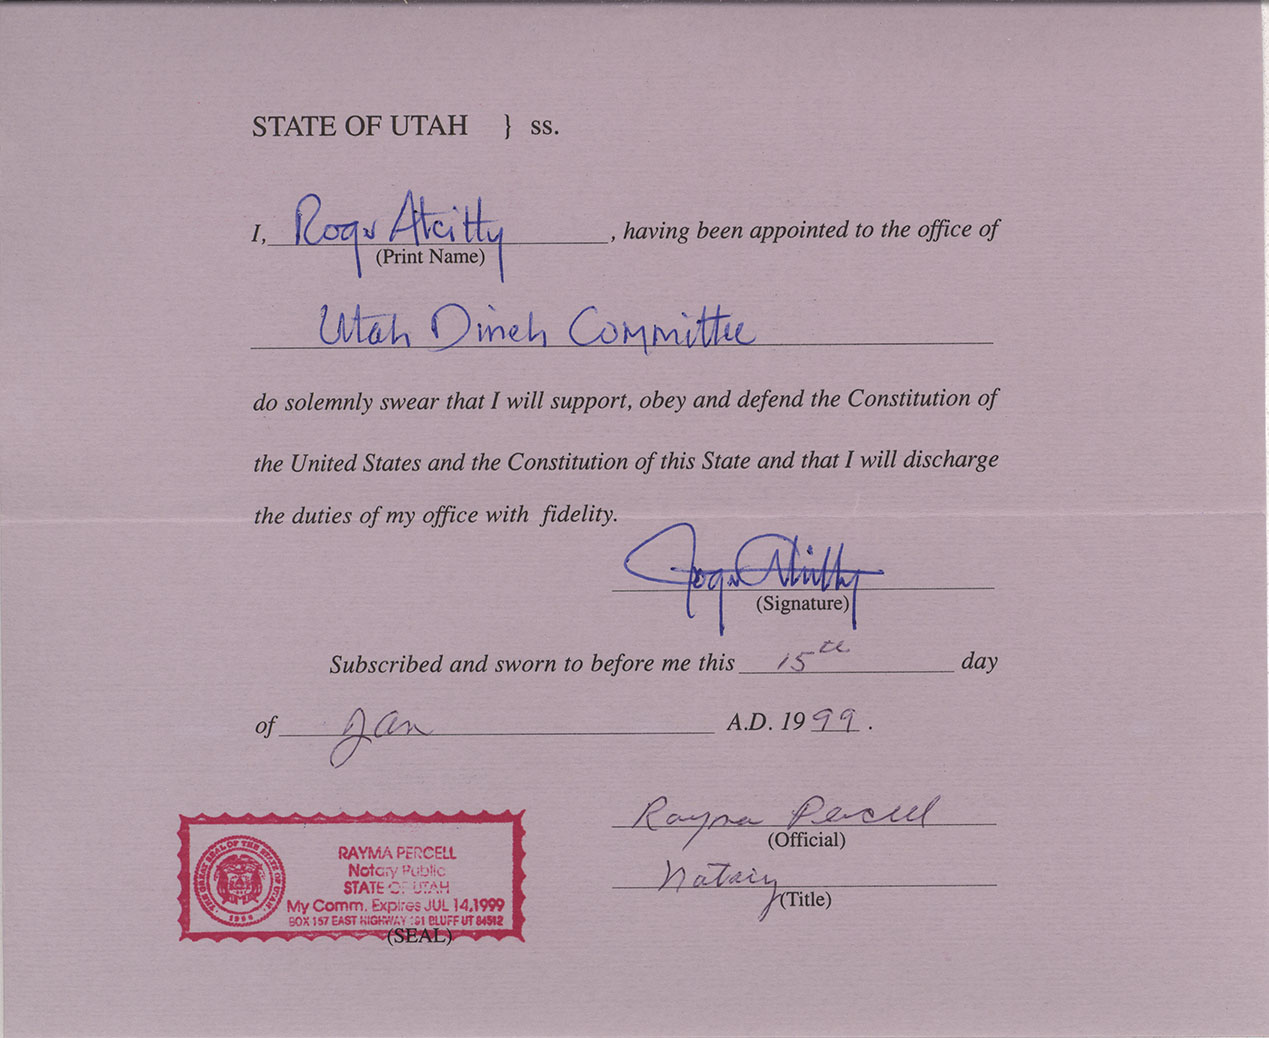 STATE OF UTAH } ss.
I, Roger Atcitty, having been appointed to the office of
(Print Name)
Utah Dineh Committee
do solemnly swear that I will support, obey and defend the Constitution of
the United States and the Constitution of this State and that I will discharge
the duties of my office with fidelity.
Roger Atcitty
(Signature)
Subscribed and sworn to before me this 15th day
of Jan A.D. 1999.
Rayma Percell
(Official)
Notary
(Title)
THE GREAT SEAL OF THE STATE OF UTAH
1896
RAYMA PERCELL
Notary Public
STATE OF UTAH
My Comm. Expires JUL 14,1999
BOX 157 EAST HIGHWAY 191 BLUFF UT 84512
(SEAL)